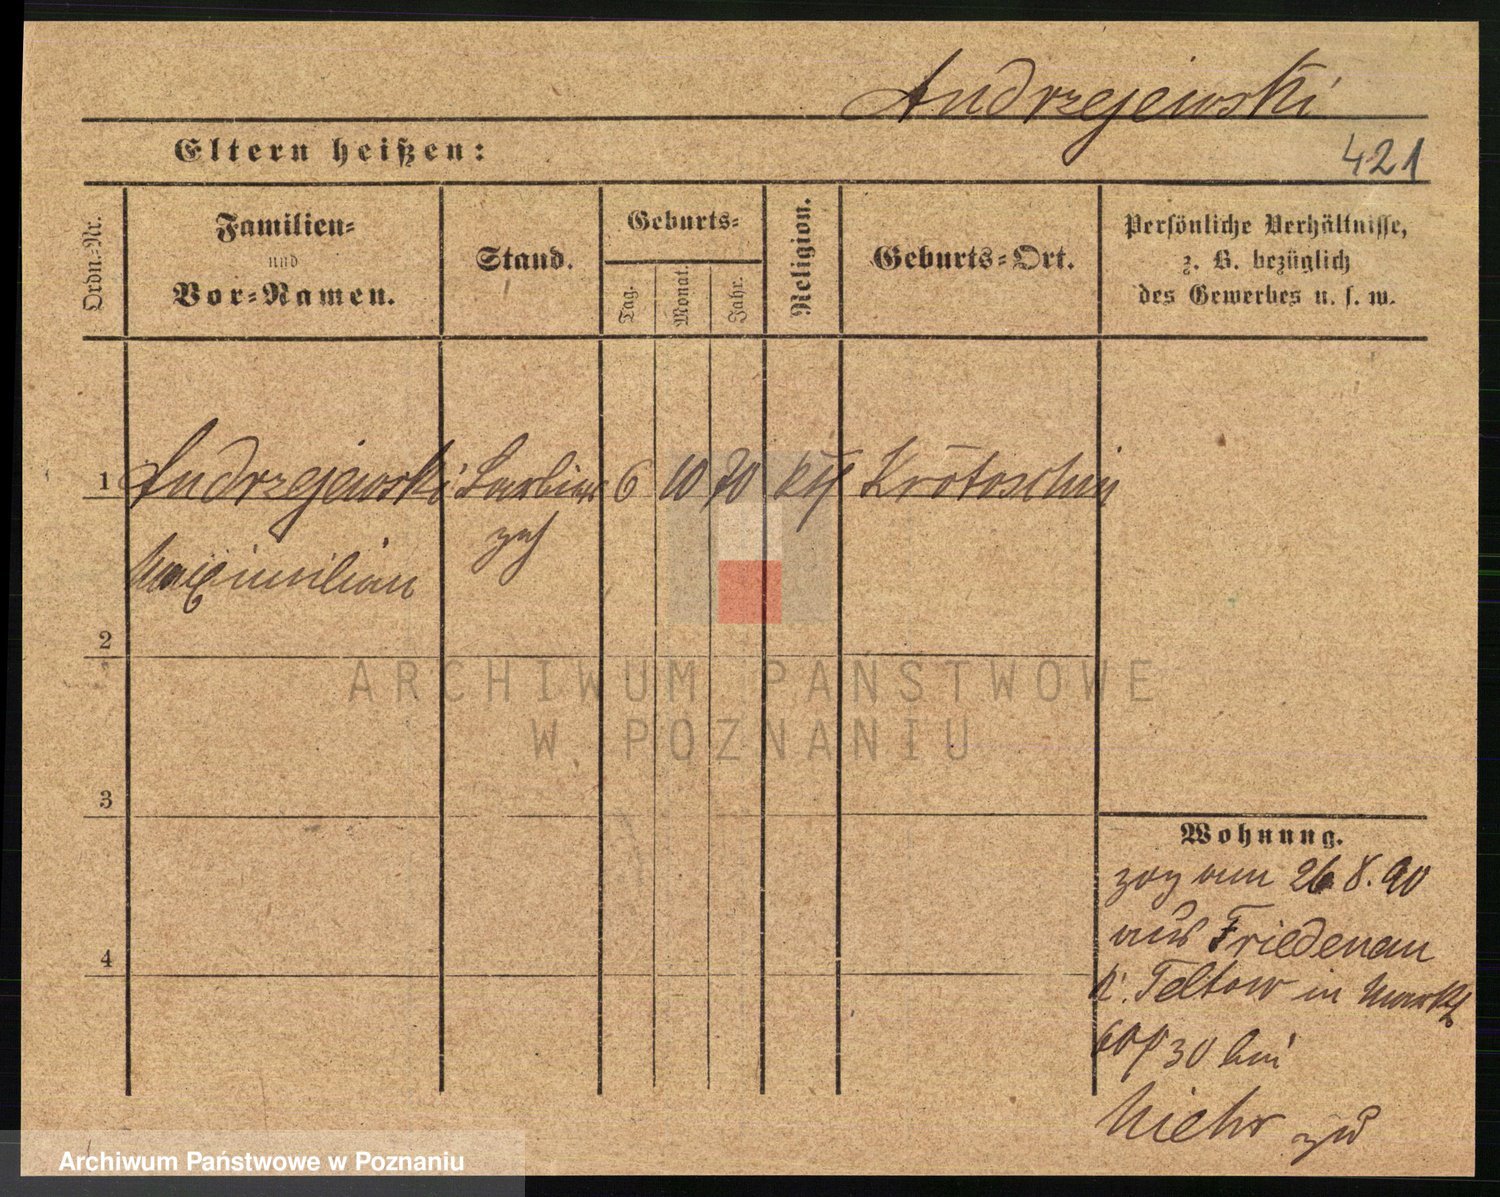 Andrzejewski
Eltern heißen:
421
Ordn.-Nr.
Familien-
und
Vor-Namen.
Stand.
Geburts-
Tag.
Monat.
Jahr.
Religion.
Geburts-Ort.
Persönliche Verhältnisse,
z. B. bezüglich
des Gewerbes u. s. w.
1 Andrzejewski 6 10 70 kth Krotoschin
Maximilian
2
3
4
Wohnung.
zog am 26 8. 90
aus Friedenau
k. Teltow in Markt
30 bei
zu
ARCHIWUM PAŃSTWOWE
W POZNANIU
Archiwum Państwowe w Poznaniu